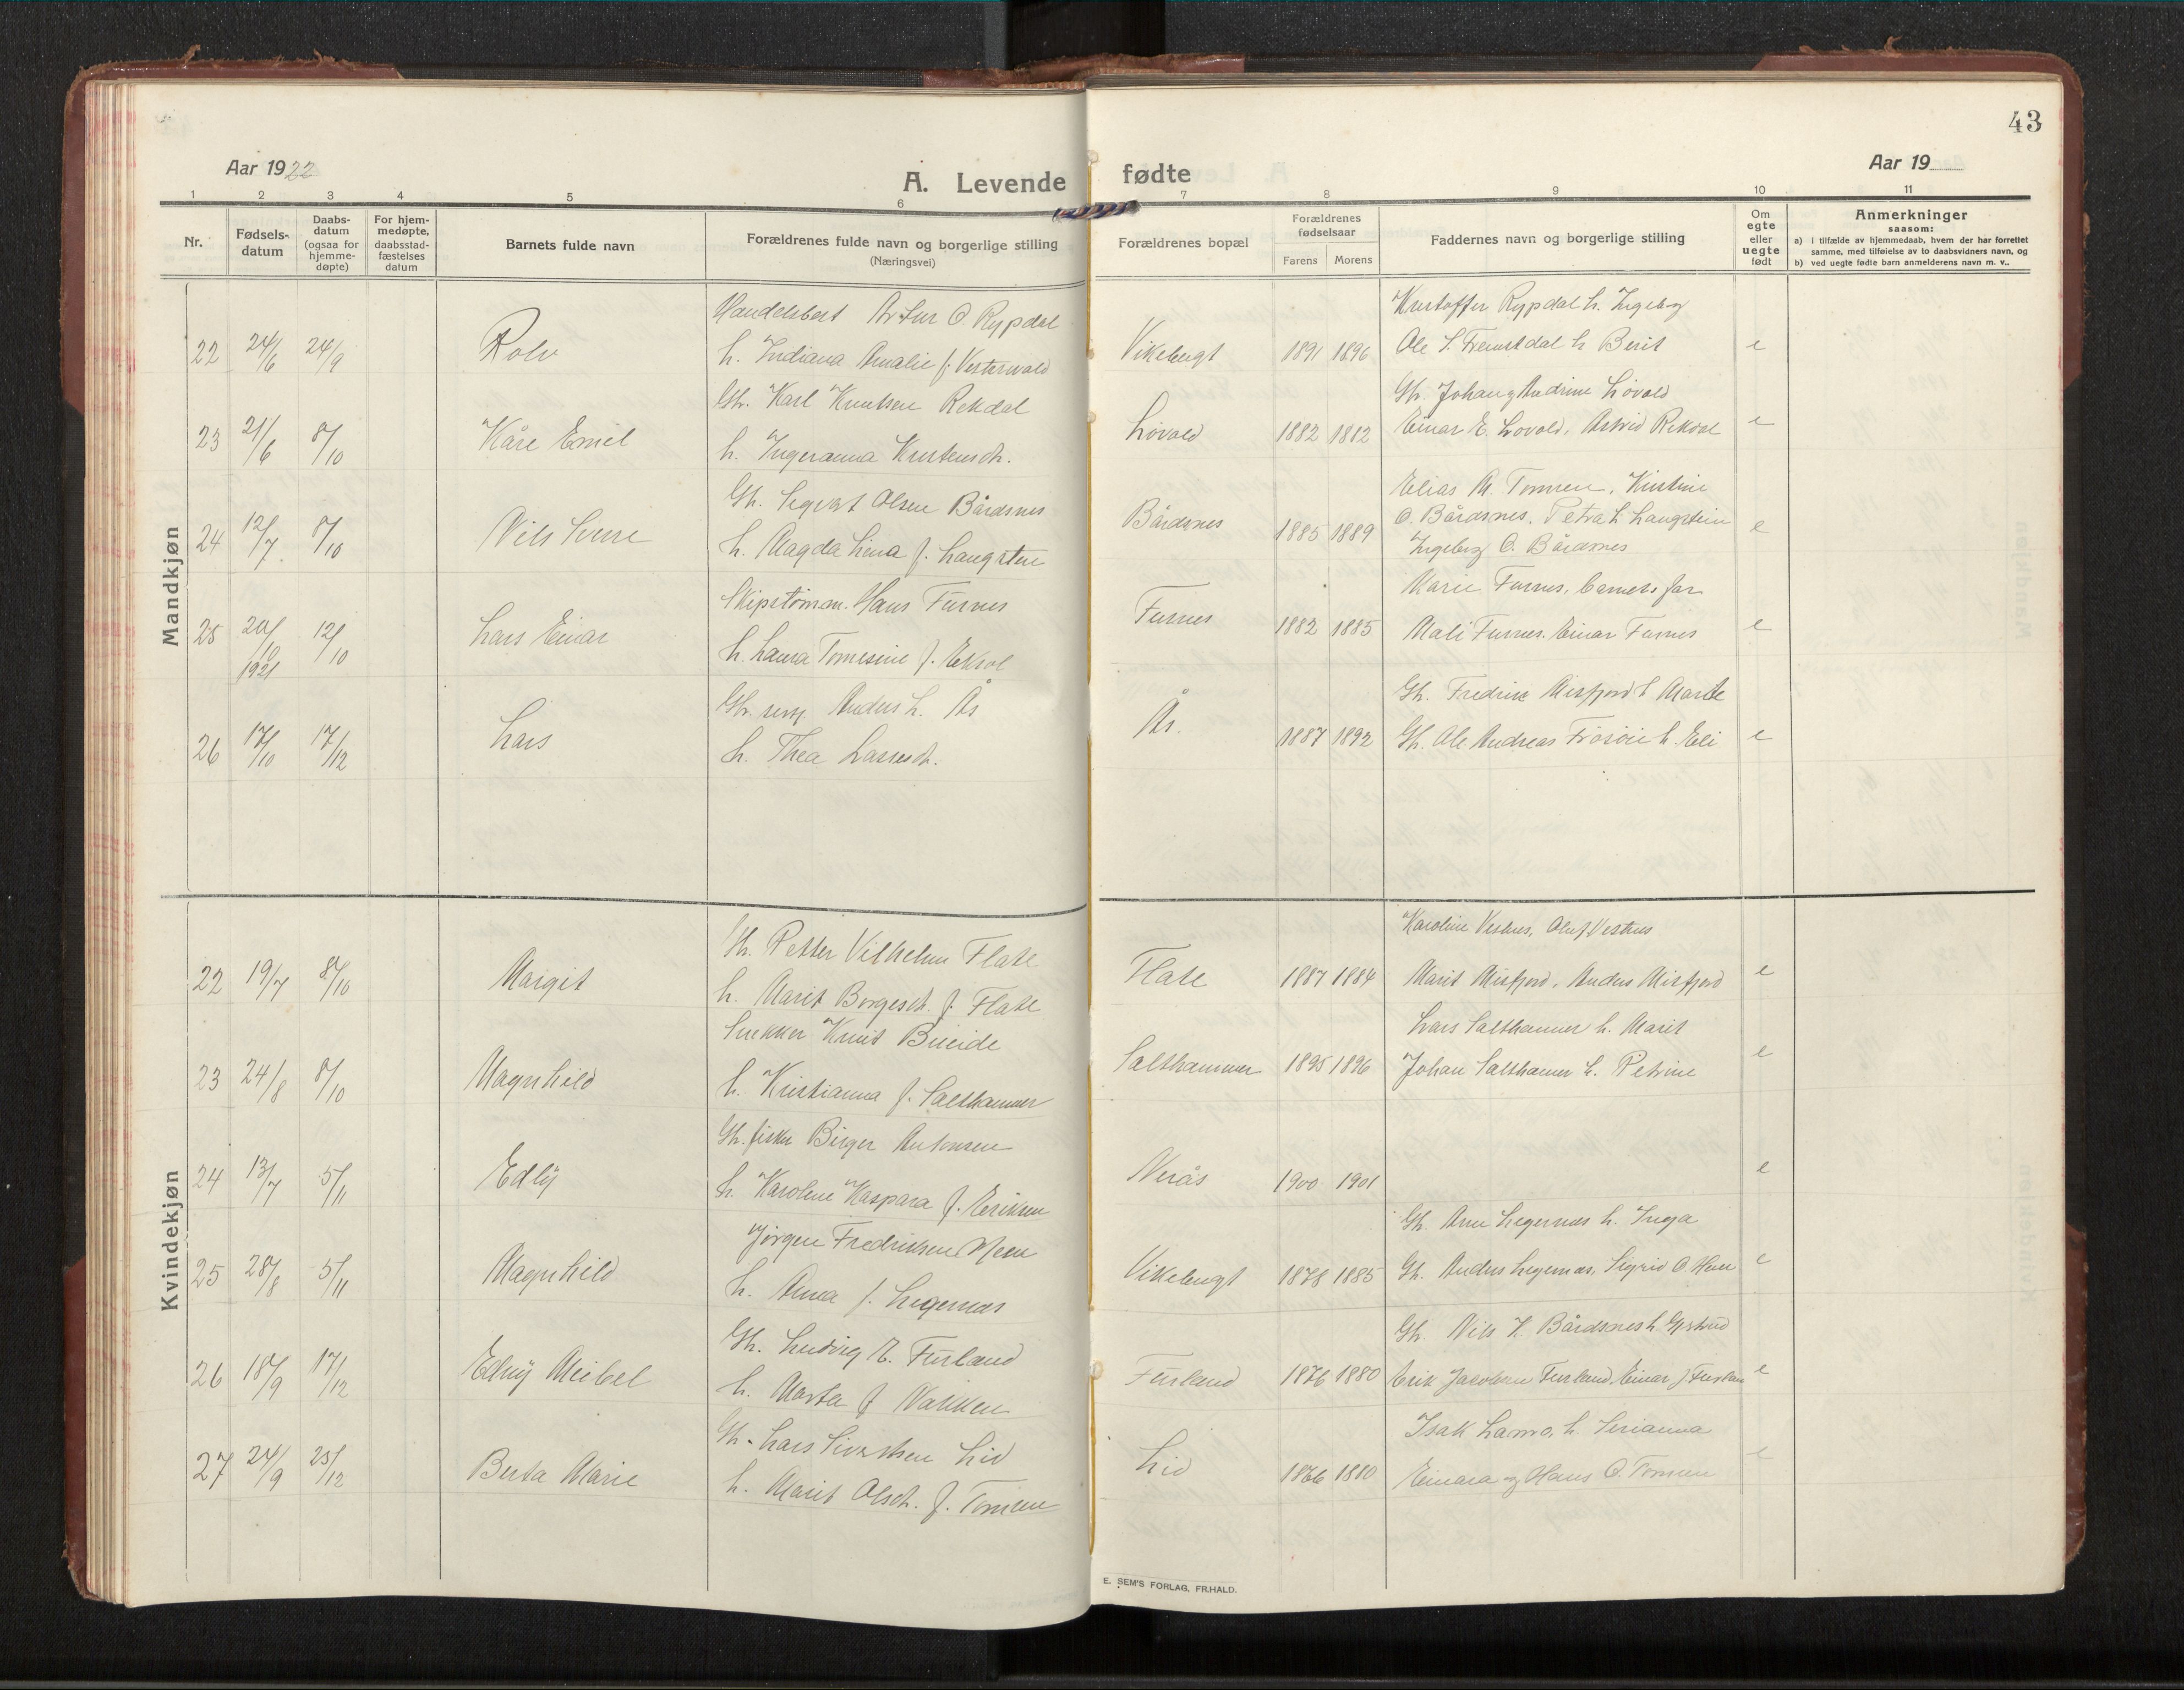 43
Aar 1922
A. Levende fødte
Aar 19
1 2 3 4 5 6 7 8 9 10 11
Nr.
Fødsels-
datum
Daabs-
datum
(ogsaa for
hjemme-
døpte)
For hjem-
medøpte,
daabsstad-
fæstelses
datum
Barnets fulde navn
Forældrenes fulde navn og borgerlige stilling
(Næringsvei)
Forældrenes bopæl
Forældrenes
fødselsaar
Farens Morens
Faddernes navn og borgerlige stilling
Om
egte
eller
uegte
født
Anmerkninger
saasom:
a) i tilfælde av hjemmedaab, hvem der har forrettet
samme, med tilføielse av to daabsvidners navn, og
b) ved uegte fødte barn anmelderens navn m. v..
Mandkjøn
Handelsbest Artur O. Rypdal Kristoffer Rypdal h. Ingebg
22 24/6 24/9 Rolv h. Indiana Amalie f. Vesterwald Vikebugt 1891 1896 Ole S. Fremstdal h Berit e
Gb. Karl Knutsen Rekdal Gb. Johan og Andrine Lovold
23 21/6 8/10 Kåre Emil h. Ingeranna Kristensdt. Lovold 1882 1882 Einar E. Lovold, Astrid Rekdal e
Gb. Sigvat Olsen Bårdsnes Elias M. Tomren, Kirstine
24 12/7 8/10 Nils h. Magda Lina f. Langsten Bårdsnes 1885 1889 O. Bårdsnes, Petra L Langstein e
Ingebrg O. Bårdsnes
Skipstømm. Hans Furnes Marie Furnes, barnets far
25 20/10 1921 12/10 Lars Einar h. Laura Tomesine f. Ekrol Furnes 1882 1885 Mali Furnes. Einar Furnes e
Gbr. Anders L. Ås Gb. Fredrik Misfjord h Marte
26 17/10 17/12 Lars h. Thea Larsesdt. Ås. 1887 1892 Gb. Ole Andreas Frosøie h. Eli e
Kvindekjøn
Gb. Petter Vilhelm Flate Karoline Vestnes, Oluf Vestnes
22 19/7 8/10 Margit h. Marit Borgesdt. f. Flate Flate 1887 1884 Marit Misfjord, Anders Misfjord e
Snekker Knut Bueide Lars Salthammer h. Marit
23 24/8 8/10 Magnhild h. Kristianna f. Salthammer Salthammer 1895 1896 Johan Salthamer h. Petrine e
Gb. fisker Birger Antonsen
24 13/7 5/11 Edly h. Karoline Kaspara f. Eriksen Nerås 1900 1901 e
Jørgen Fredriksen Neen Gb. Arne Legernes h. Inga
25 28/8 5/11 Magnhild h. Anna f. Legernes Vikebugt 1878 1885 Gb. Anders Legernes, Sigrid O. e
Gb. Ludvig E. Furland Gb. Nils K. Bårdsnes h. Gjertrud
26 18/9 17/12 Edny Meibel h. Marta f Nakken Furland 1876 1880 Erik Jacobsen Furland, Einar J Furlan e
Gb. Lars Sivertsen Lid Isak Lamo, h. Serianna
27 24/9 25/12 Berta Marie h. Marit Olsdt. f. Tomren Lid 1866 1880 Einara og Hans O. Tomren e
E. SEM'S FORLAG, FR.HALD.